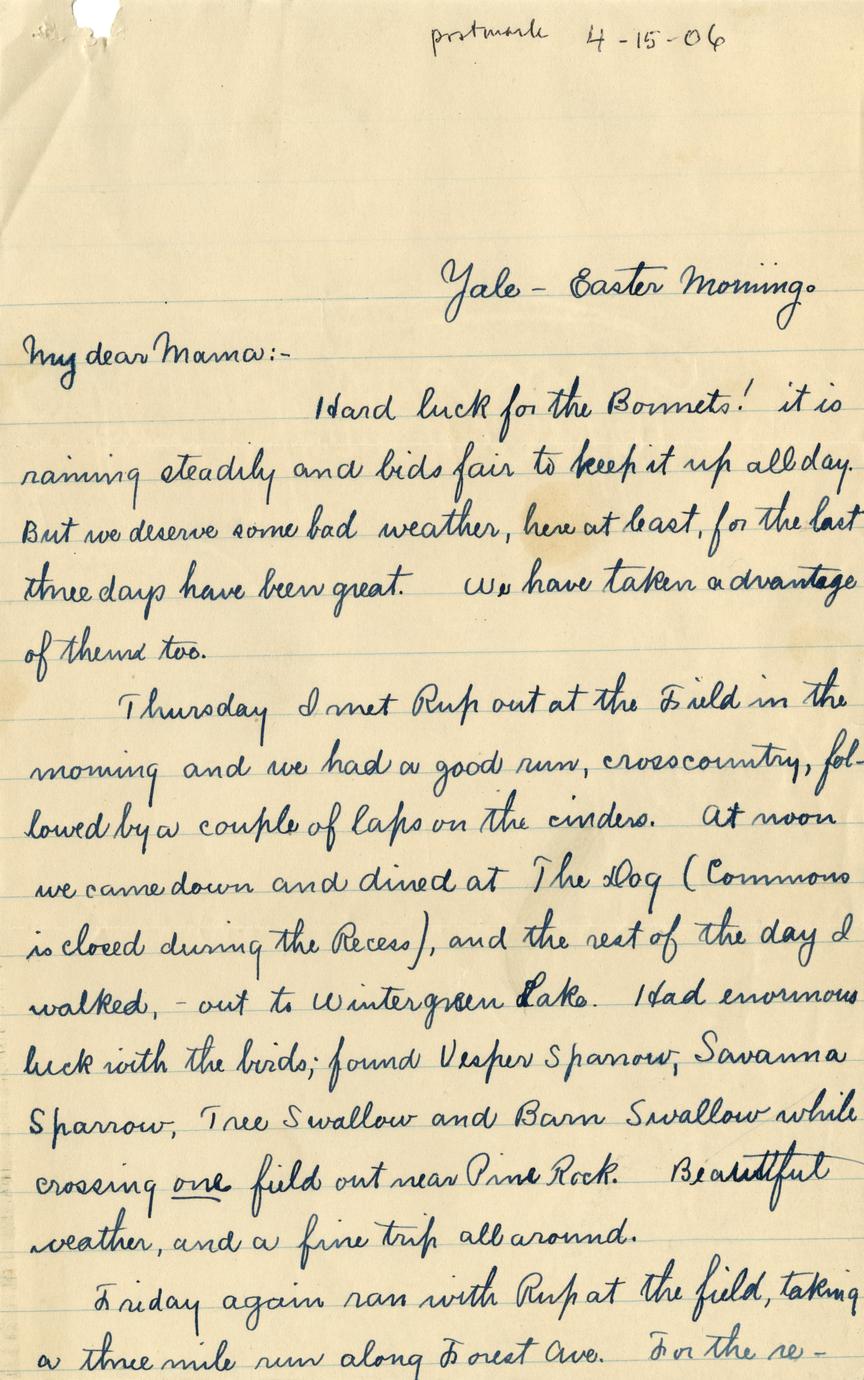 postmark 4-15-06
Yale - Easter Morning.
My dear Mama:-
Hard luck for the Bonnets! it is
raining steadily and bids fair to keep it up all day.
But we deserve some bad weather, here at least, for the last
three days have been great. We have taken advantage
of them too.
Thursday I met Rup out at the Field in the
morning and we had a good run, crosscountry, fol-
lowed by a couple of laps on the cinders. At noon
we came down and dined at The Dog (Commons
is closed during the Recess), and the rest of the day I
walked, - out to Wintergreen Lake. Had enormous
luck with the birds; found Vesper Sparrow, Savanna
Sparrow, Tree Swallow and Barn Swallow while
crossing one field out near Pine Rock. Beautiful
weather, and a fine trip all around.
Friday again ran with Rup at the field, taking
a three mile run along Forest Ave. For the re-